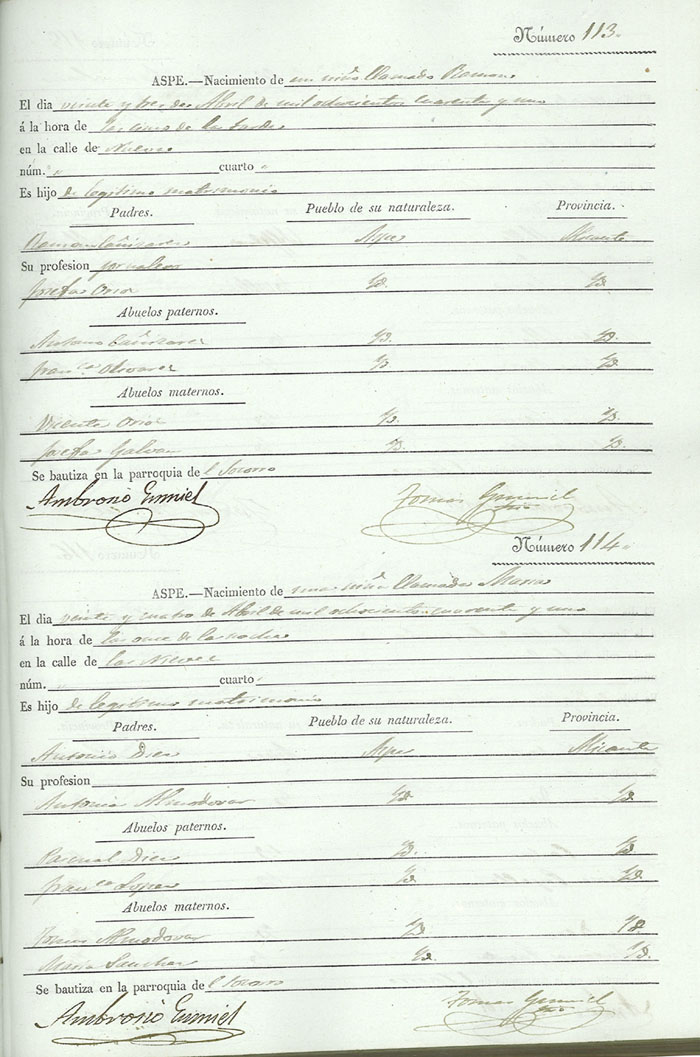 Número 113.
ASPE.—Nacimiento de un niño llamado Ramon
El dia veinte y tres de Abril de mil ochocientos cuarenta y uno
á la hora de las cinco de la tarde
en la calle de Nueva
núm. " cuarto "
Es hijo de legitimo matrimonio
Padres. Pueblo de su naturaleza. Provincia.
Ramon Cañizares Aspe Alicante
Su profesion jornalero
Josefa Oriol Yd. Yd.
Abuelos paternos.
Antonio Cañizares Yd. Yd.
Franca. Olivares Yd. Yd.
Abuelos maternos.
Vicente Oriol Yd. Yd.
Josefa Galvan Yd. Yd.
Se bautiza en la parroquia de l Socorro
Ambrosio Gumiel Tomas Gumiel
Número 114.
ASPE.—Nacimiento de una niña llamada Maria
El dia veinte y cuatro de Abril de mil ochocientos cuarenta y uno
á la hora de las once de la noche
en la calle de las Nieves
núm. " cuarto "
Es hijo de legitimo matrimonio
Padres. Pueblo de su naturaleza. Provincia.
Antonio Diez Aspe Alicante
Su profesion
Antonia Almodovar Yd. Yd.
Abuelos paternos.
Pascual Diez Yd. Yd.
Franca. Lopez Yd. Yd.
Abuelos maternos.
Tomas Almodovar Yd. Yd.
Maria Sanchez Yd. Yd.
Se bautiza en la parroquia de l Socorro
Ambrosio Gumiel Tomas Gumiel